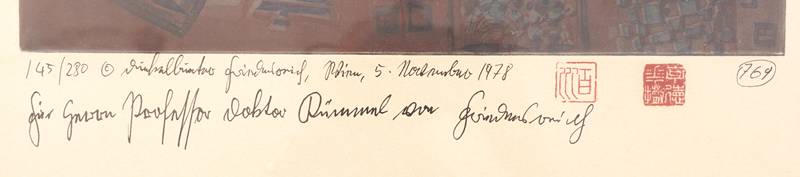 145/280 © Dunkelbunter Friedensreich, Wien, 5. November 1978 769
Für Herrn Professor Doktor Rümmel von Friedensreich